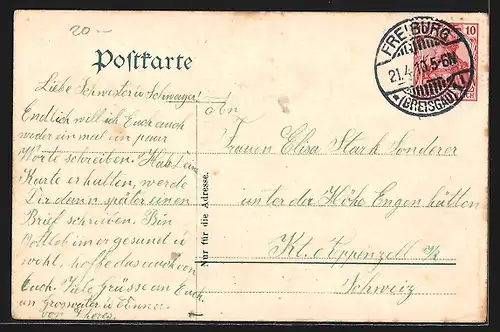 20.-
Postkarte
FREIBURG
21.4.10.5-6N
(BREISGAU)
10
Liebe Schwester u Schwager!
Endlich will ich Euch auch
wieder ein mal ein paar
Worte schreiben. Hab
Karte erhalten, werde
Dir dann später einen
Brief schreiben. Bin
immer gesund u
wohl, hoffe das auch von
Euch. Viele Grüsse an Euch
an Grosvater u
von
Nur für die Adresse.
An
Frauen Elisa Stark Sonderer
unter der Höhe Engenhütten
Kt. Appenzell I/R
Schweiz